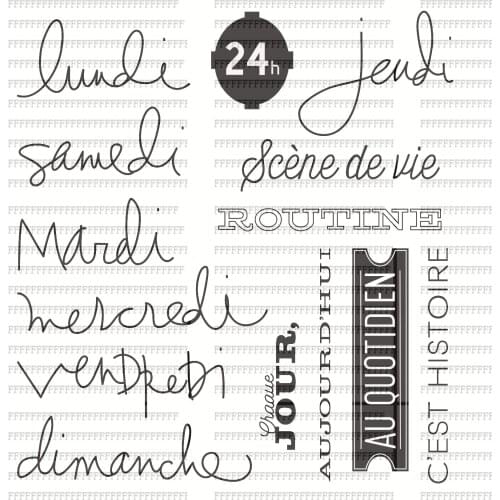 lundi
24h
jeudi
samedi
Scène de vie
Mardi
ROUTINE
mercredi
vendredi
dimanche
Chaque
JOUR,
AUJOURD'HUI
AU QUOTIDIEN
C'EST HISTOIRE